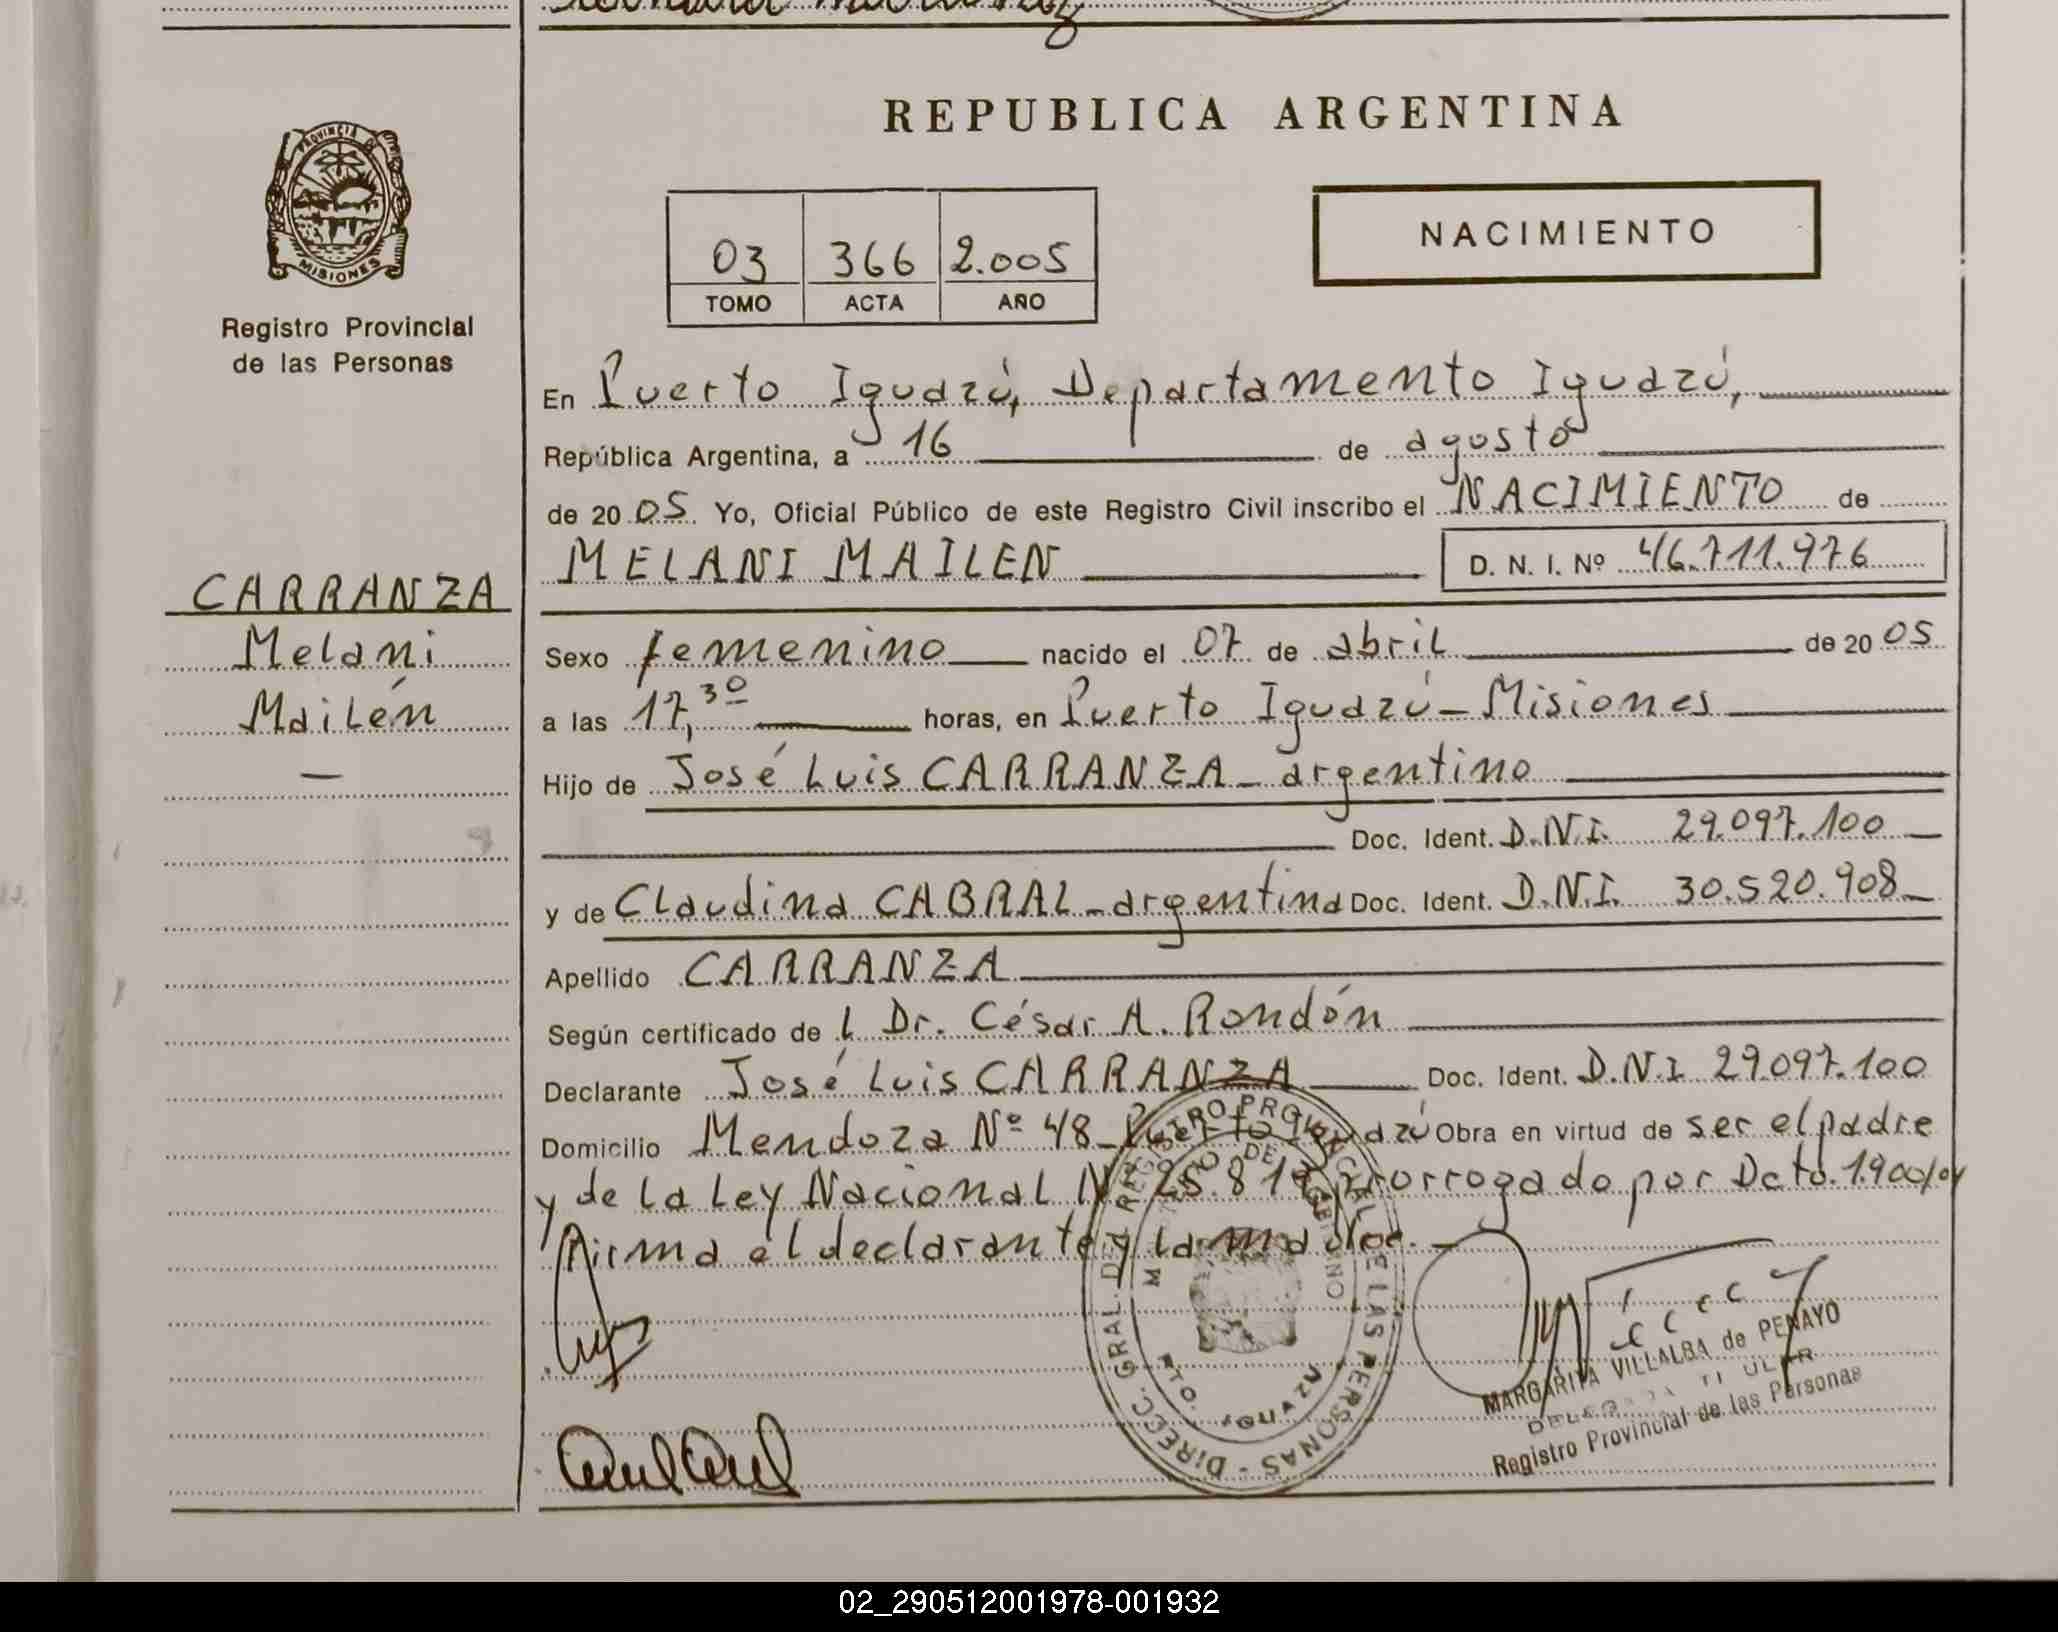 REPUBLICA ARGENTINA
PROVINCIA DE
MISIONES
Registro Provincial
de las Personas
03 366 2.005
TOMO ACTA AÑO
NACIMIENTO
En Puerto Iguazú, Departamento Iguazú,
República Argentina, a 16 de agosto
de 2005. Yo, Oficial Público de este Registro Civil inscribo el NACIMIENTO de
MELANI MAILEN D. N. I. Nº 46.711.976
CARRANZA
Melani
Mailén
Sexo femenino nacido el 07 de abril de 2005
a las 17,30 horas, en Puerto Iguazú - Misiones
Hijo de José Luis CARRANZA - argentino
Doc. Ident. D.N.I. 29.097.100
y de Claudina CABRAL - argentina Doc. Ident. D.N.I. 30.520.908
Apellido CARRANZA
Según certificado del Dr. César A. Rondón
Declarante José Luis CARRANZA Doc. Ident. D.N.I 29.097.100
Domicilio Mendoza Nº 48 - Puerto Iguazú Obra en virtud de ser el padre
y de la Ley Nacional Nº 25.819 prorrogado por Dcto. 1.900/04
Firma el declarante y la madre.
DIRECC. GRAL. DEL REGISTRO PROVINCIAL DE LAS PERSONAS
DTO. IGUAZU
MARGARITA VILLALBA de PENAYO
DELEGADA TITULAR
Registro Provincial de las Personas
02_290512001978-001932